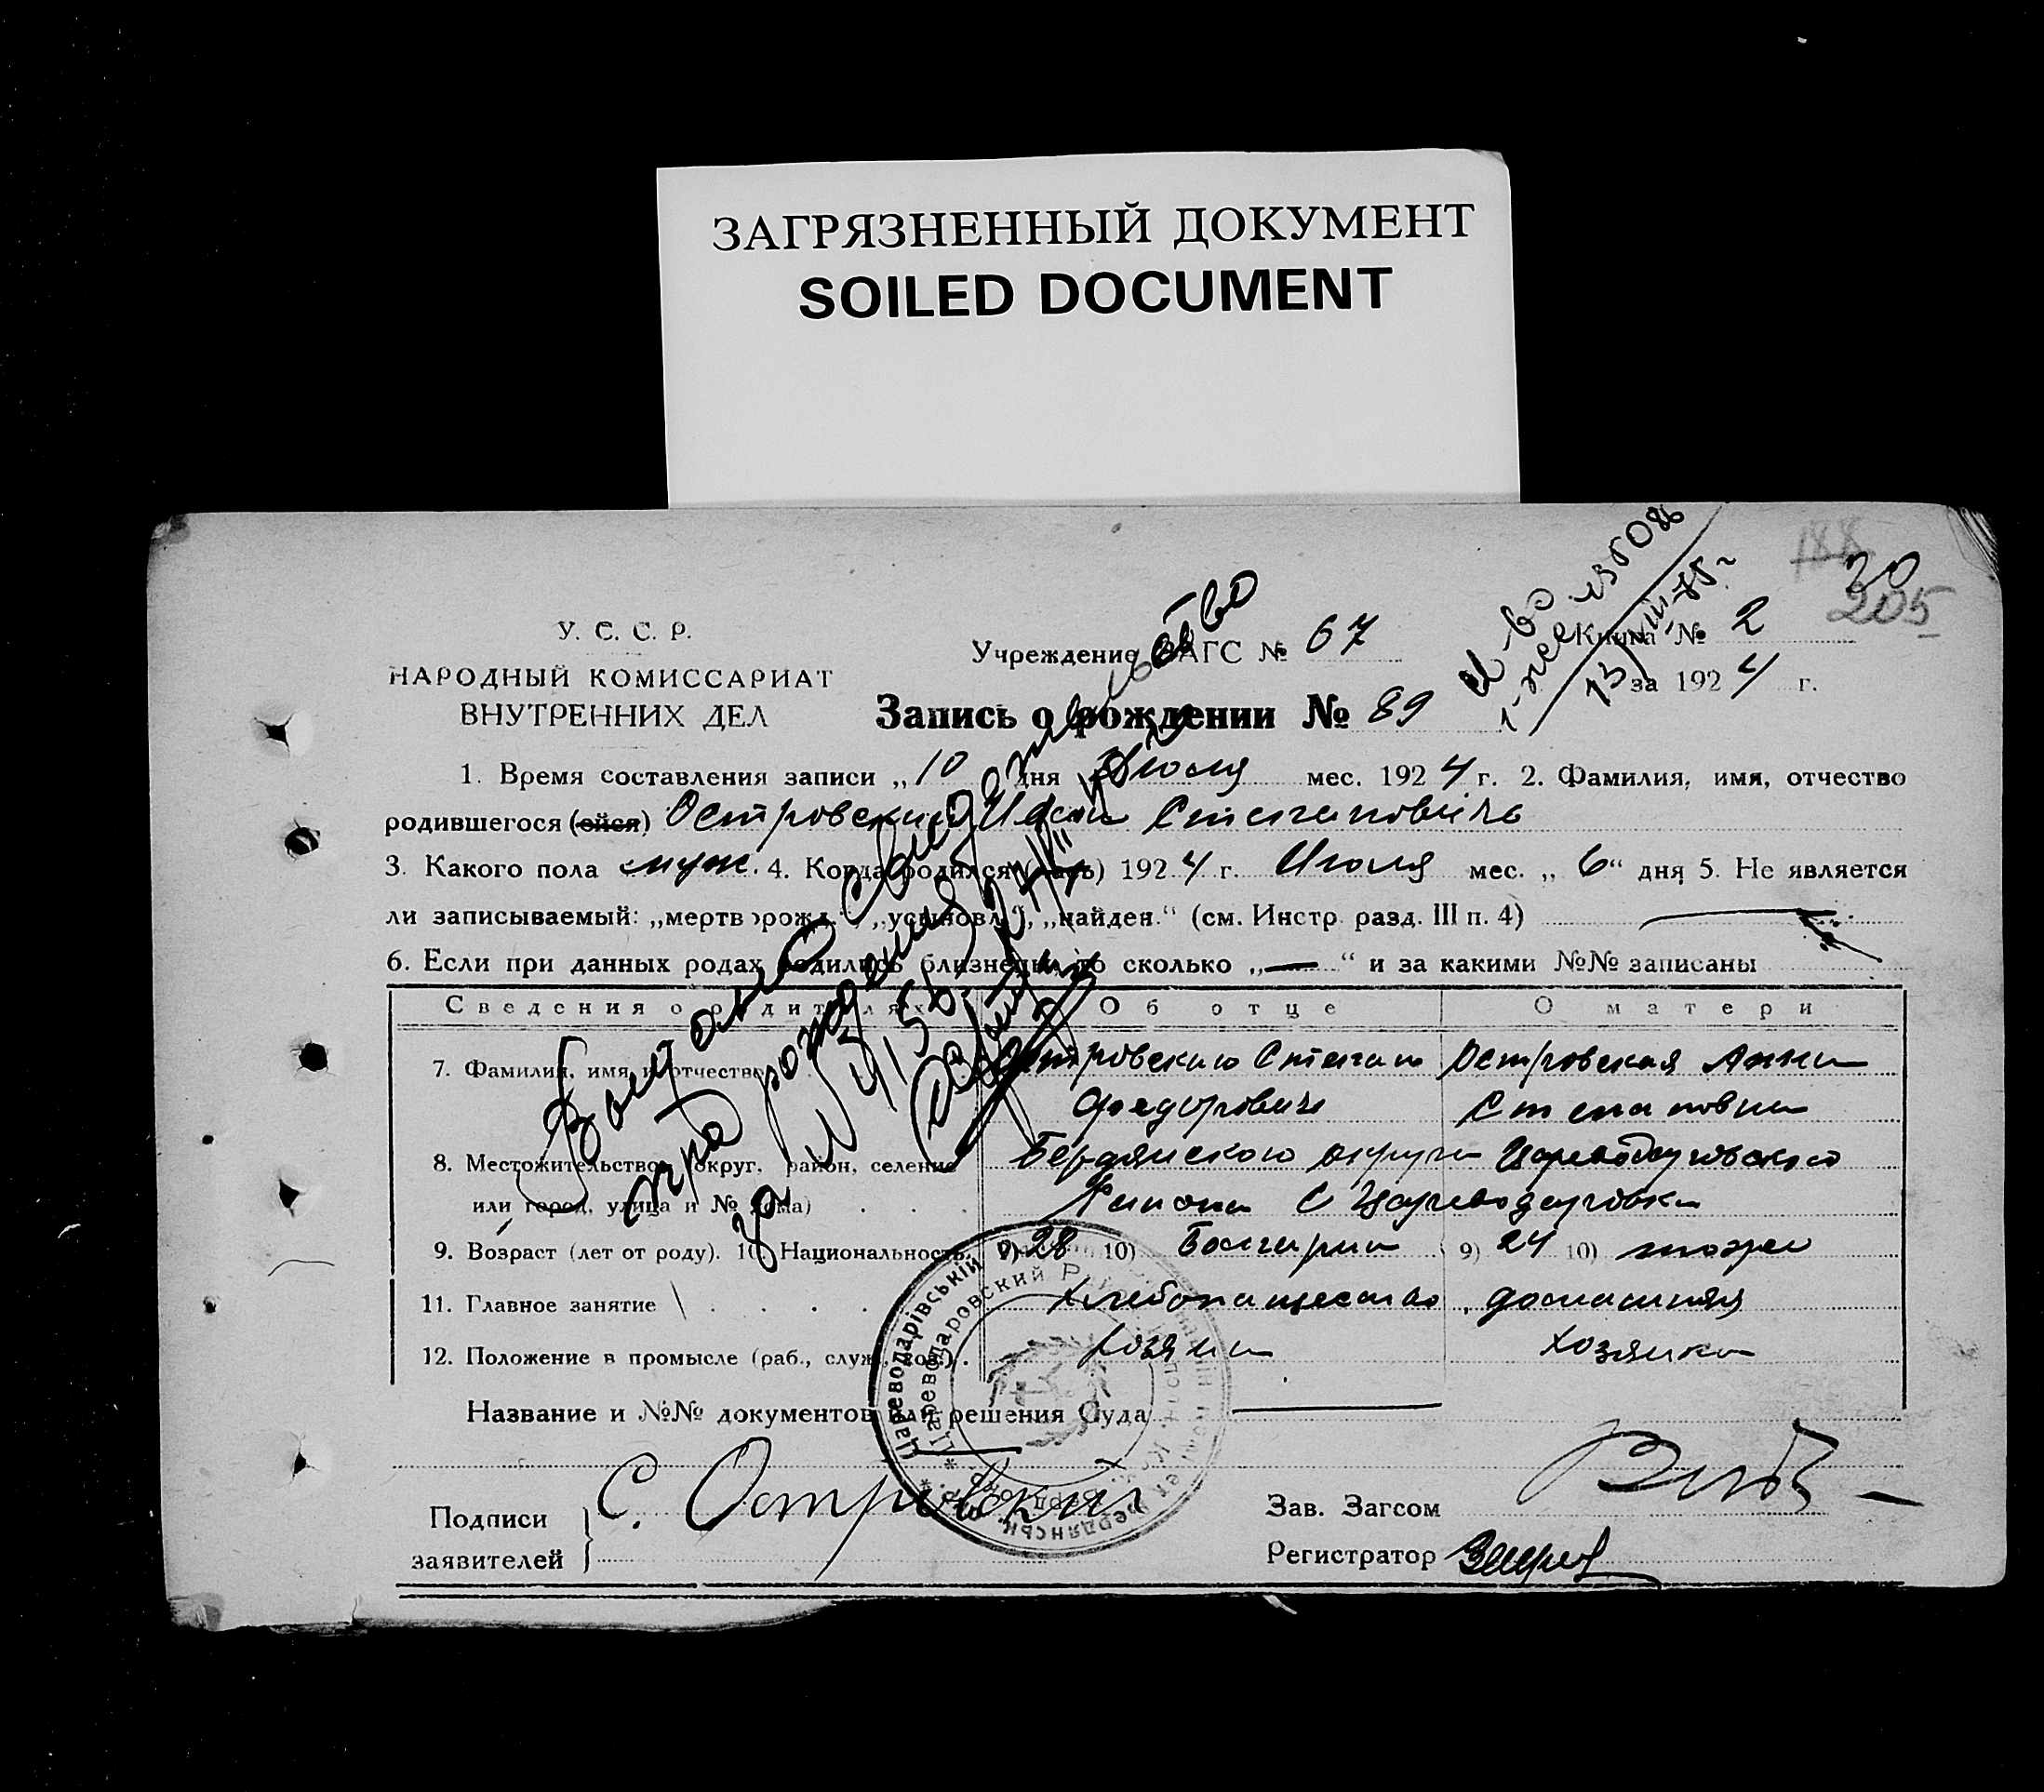 ЗАГРЯЗНЕННЫЙ ДОКУМЕНТ
SOILED DOCUMENT
30
205
У. С. С. Р.
НАРОДНЫЙ КОМИССАРИАТ
ВНУТРЕННИХ ДЕЛ
Учреждение ЗАГС № 67
Книга № 2
за 1924 г.
Запись о рождении № 89
1. Время составления записи „10 дня Июля мес. 1924 г. 2. Фамилия, имя, отчество
родившегося (ойся) Островский Иван Степановичь
3. Какого пола муж. 4. Когда родился (лась) 1924 г. Июля мес. „6“ дня 5. Не является
ли записываемый: „мертворожд.“, „усыновл.“, „найден.“ (см. Инстр. разд. III п. 4)
6. Если при данных родах родились близнецы то сколько „—“ и за какими №№ записаны
Сведения о родителях Об отце О матери
7. Фамилия, имя и отчество Островский Степан Островская Анна
Федорович Степановна
8. Местожительство округ, район, селение Бердянского округа Цареводаровского
или город, улица и № дома) Района С Цареводаровка
9. Возраст (лет от роду). 10. Национальность. 9) 28 10) Болгарин 9) 24 10) тоже
11. Главное занятие Хлебопашество домашняя
12. Положение в промысле (раб., служ., хоз.) хозяин хозяйка
Название и №№ документов или решения Суда
Подписи С. Островский
заявителей
Зав. Загсом
Регистратор
Выдано свидетельство
о рождении